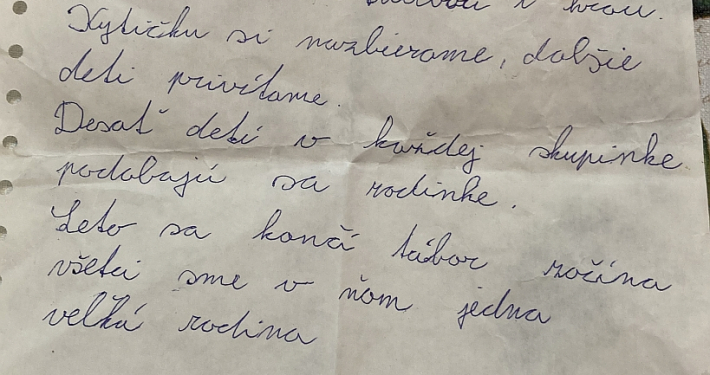 i hrou.
Kytičku si nazbierame, ďalšie
deti privítame.
Desať detí v každej skupinke
podobajú sa rodinke.
Leto sa končí tábor začína
všetci sme v ňom jedna
veľká rodina